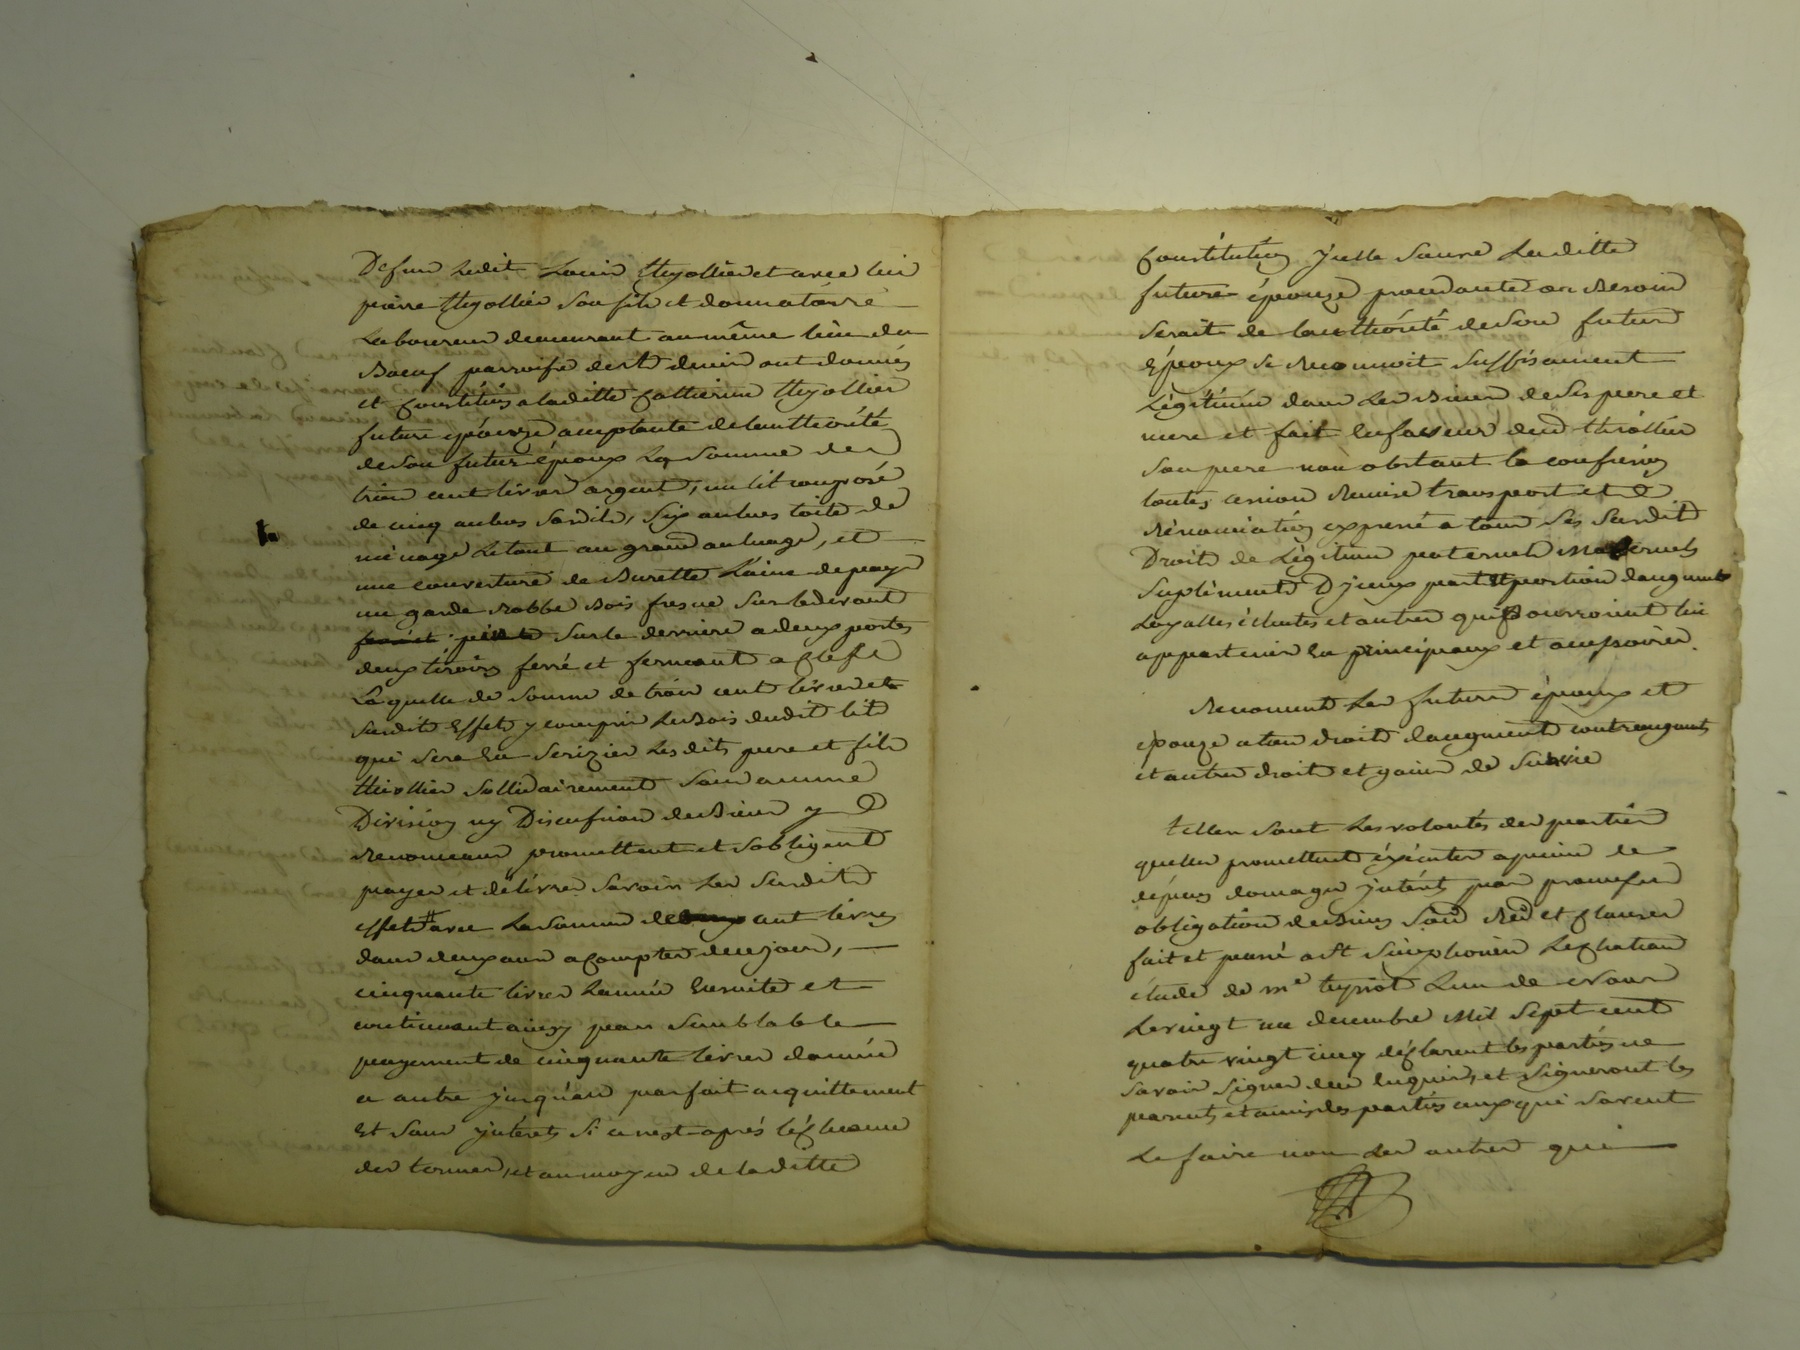 De fun ledit Louis thyollier et avec lui
pierre thyollier son fils et donnatairre
Laboureur demeurant au même lieu du
Boeuf parroisse de st denis ont donnés
et constitués a laditte Catherine thyollier
future épouze acceptante de lauthorité
de son futur époux La somme de
trois cent livres argent, un lit composé
de cinq aulnes sardits, six aulnes toile de
ménage Le tout au grand aulnage, et
une couverture de Burette Laine de pays
un garde Robbe Bois fresne sur le devant
sur le derriere a deux portes
deux tiroirs ferré et fermant a Clefs
Laquelle de somme de trois cent livres et
susdits Effets y compris Le Bois dudit lit
qui sera En serizier Lesdits pere et fils
thiollier sollidairement sans aucune
Division ny Discussion de Biens y
Renonceans promettent et sobligent
payer et délivrer savoir Les susdits
effets # avec La somme de cent livres
dans deux ans a Compter de ce jour,
cinquante livres Lannée Ensuite et
continuant ainsy par semblable
payement de cinquante livres dannée
a autre jusquau parfait acquittement
Et sans jntérets si ce nest après léchéance
des termes, et au moyen de laditte
Constitution jcelle Saune Laditte
future épouze procédante ou Besoin
serait de lauthorité de son futur
Epoux se Reconnoit suffisament
Légitimée dans Les Biens de ses pere et
mere et fait En faveur dud thiollier
son pere non obstant la confusion
toutes cession Remise transport et
Rénonciation expresse a tous ses susdits
Droits de Légitime paternels Maternels
suplément D'jceux part et portion daugment
Loyalles échutes et autres qui Pourroient lui
appartenir En principaux et accessoires.
Renoncent Les futurs époux et
épouze a tous droits daugment contreaugments
et autres droits et gains de survie
telles sont Les volontés des parties
quelles promettent éxécuter a peine de
dépens domages jntérets par promesses
obligation de Biens soûm Ren et Clauses
fait et passé a st simphorien Le Chateau
étude de me teyssot Lun de Nous
Le vingt un decembre Mil sept cent
quatre vingt cinq déclarent les parties ne
savoir signer de ce Enquis, et signeront les
parents et amis des parties ceux qui savent
Le faire non Les autres qui